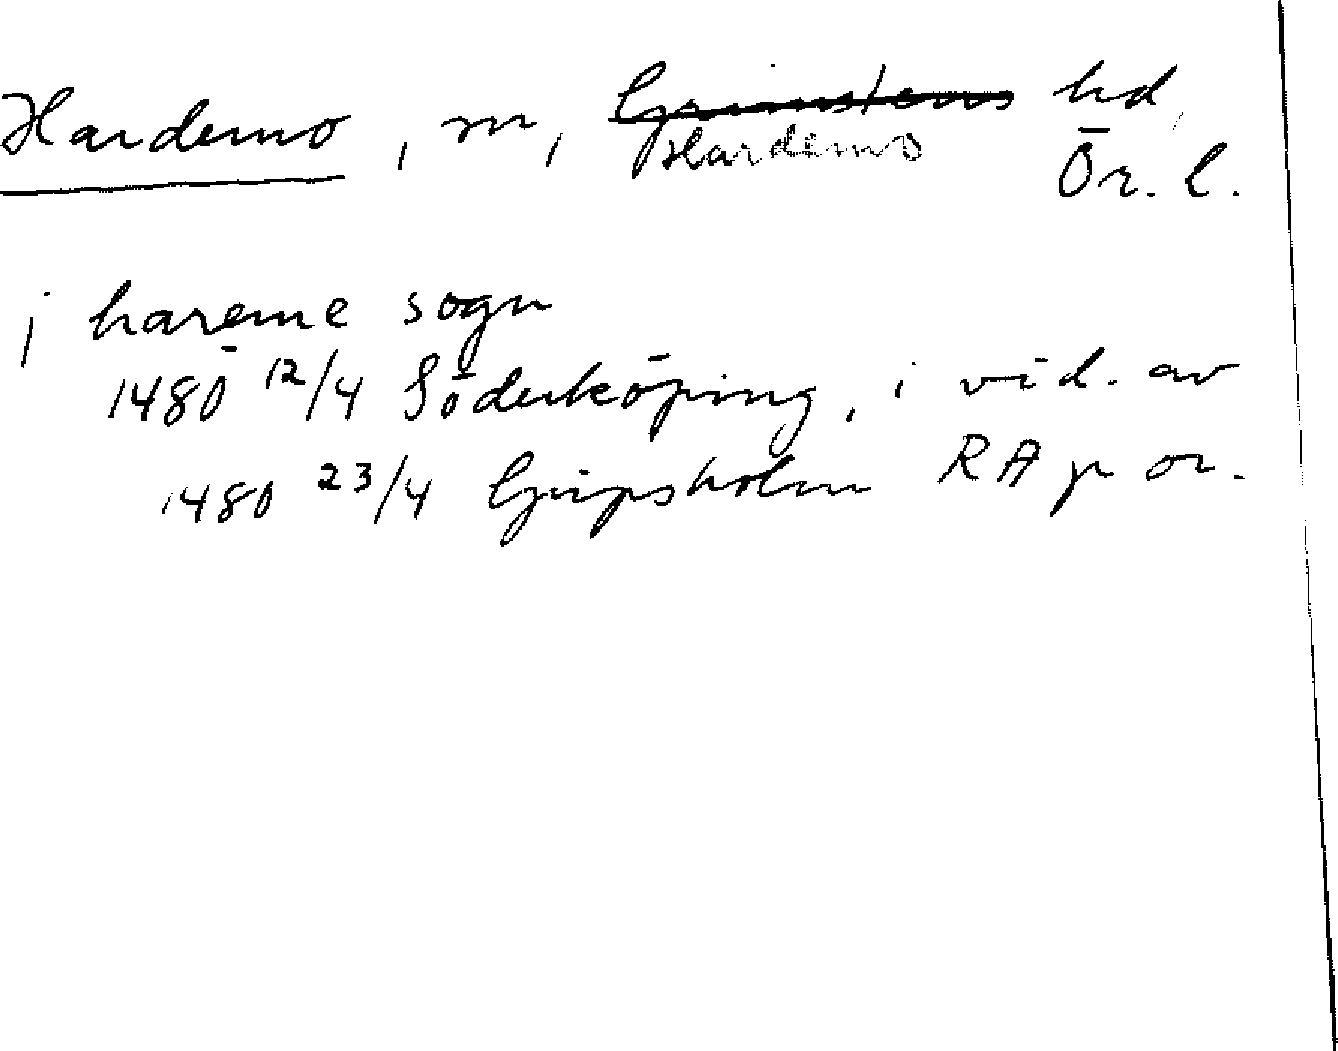 Hardemo, sn, Grimstens hd,
Hardemo Ör. l.
j hareme sogn
1480 12/4 Söderköping, i vid. av
1480 23/4 Gripsholm RA p or.